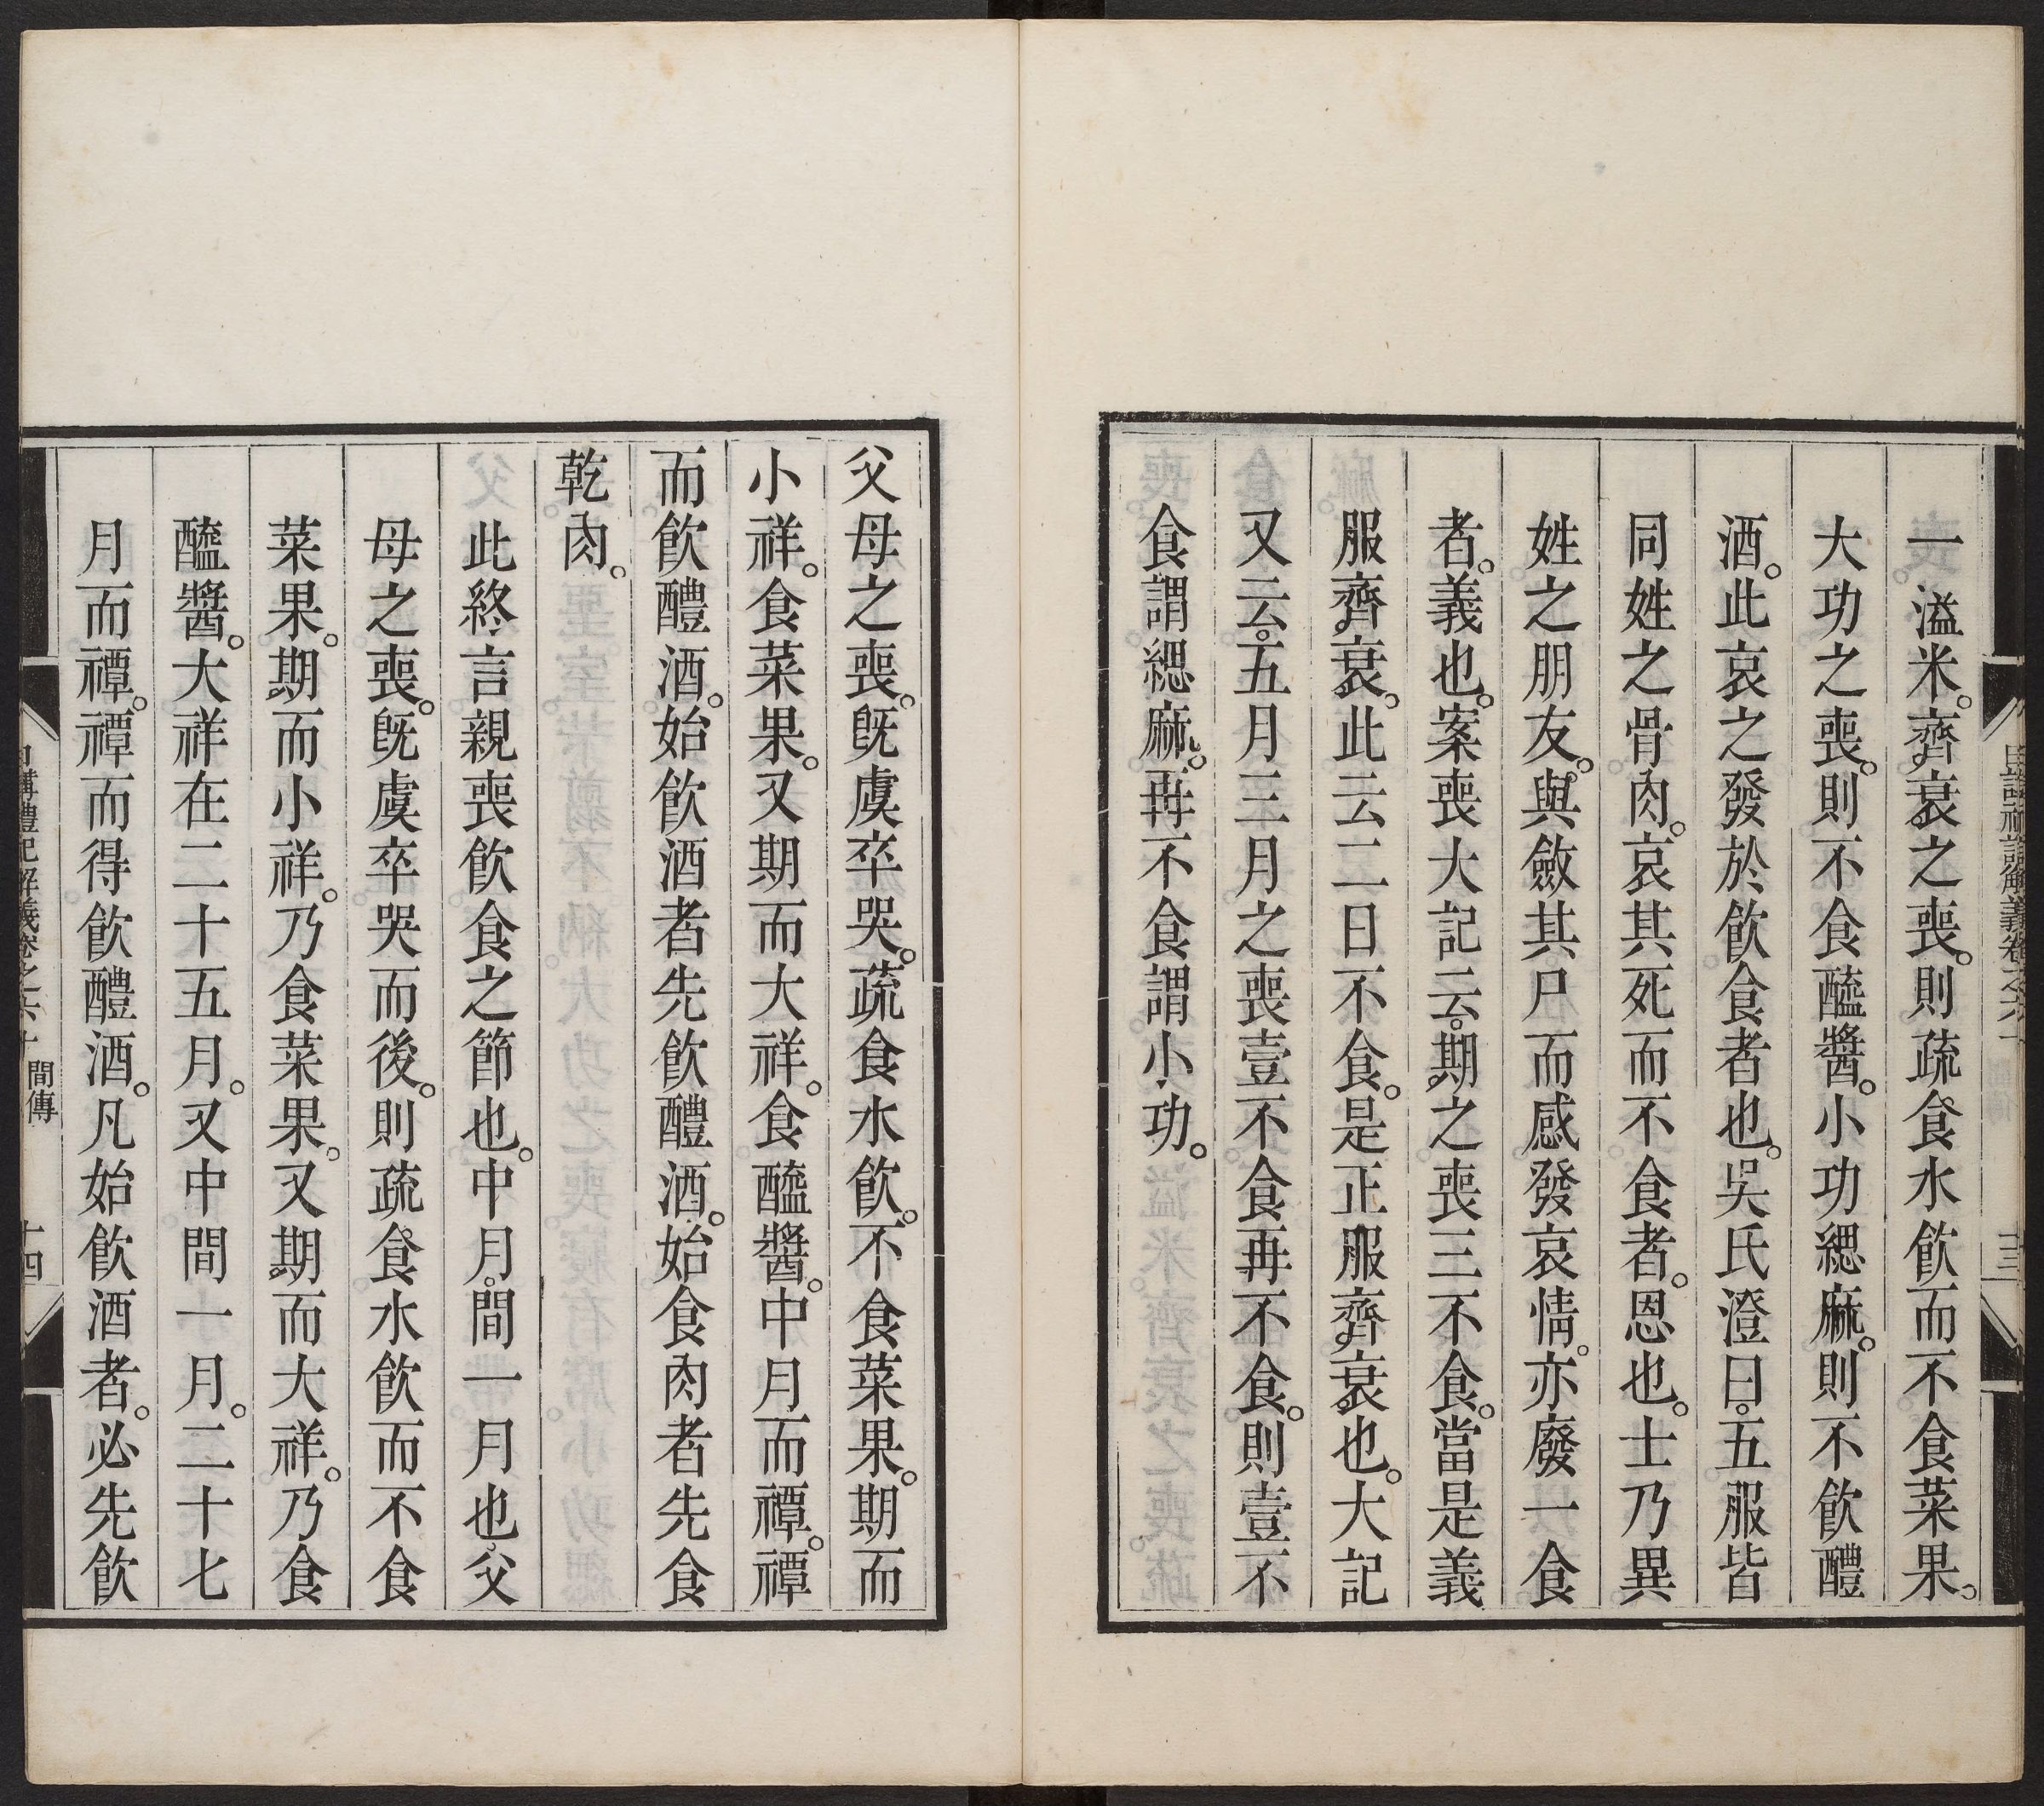 一溢米。齊衰之喪。則疏食水飲而不食菜果。
大功之喪。則不食醯醬。小功緦麻。則不飲醴
酒。此哀之發於飲食者也。吳氏澄曰。五服皆
同姓之骨肉。哀其死而不食者。恩也。士乃異
姓之朋友。與斂其尸而感發哀情。亦廢一食
者。義也。案喪大記云。期之喪三不食。當是義
服齊衰。此云二日不食。是正服齊衰也。大記
又云。五月三月之喪壹不食再不食。則壹不
食謂緦麻。再不食謂小功。
父母之喪。旣虞卒哭。疏食水飲。不食菜果。期而
小祥。食菜果。又期而大祥。食醯醬。中月而禫。禫
而飲醴酒。始飲酒者先飲醴酒。始食肉者先食
乾肉。
此終言親喪飲食之節也。中月。間一月也。父
母之喪。旣虞卒哭而後。則疏食水飲而不食
菜果。期而小祥。乃食菜果。又期而大祥。乃食
醯醬。大祥在二十五月。又中間一月。二十七
月而禫。禫而得飲醴酒。凡始飲酒者。必先飲
日講禮記解義卷之六十 間傳 十四